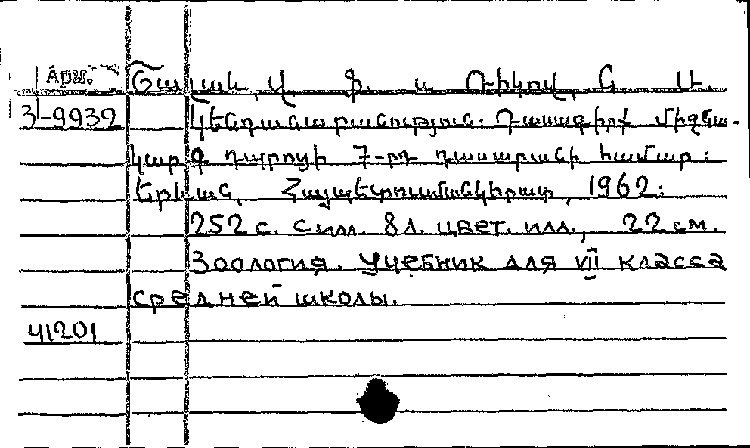 Арм. Շալաև, Վ. Ֆ. և Ռիկով, Ն. Ա.
3-9939 Կենդանաբանություն: Դասագիրք միջնա-
կարգ դպրոցի 7-րդ դասարանի համար:
Երևան, Հայպետուսմանկհրատ, 1962:
252 с. с илл. 8 л. цвет. илл., 22 см.
Зоология. Учебник для VII класса
средней школы.
41201